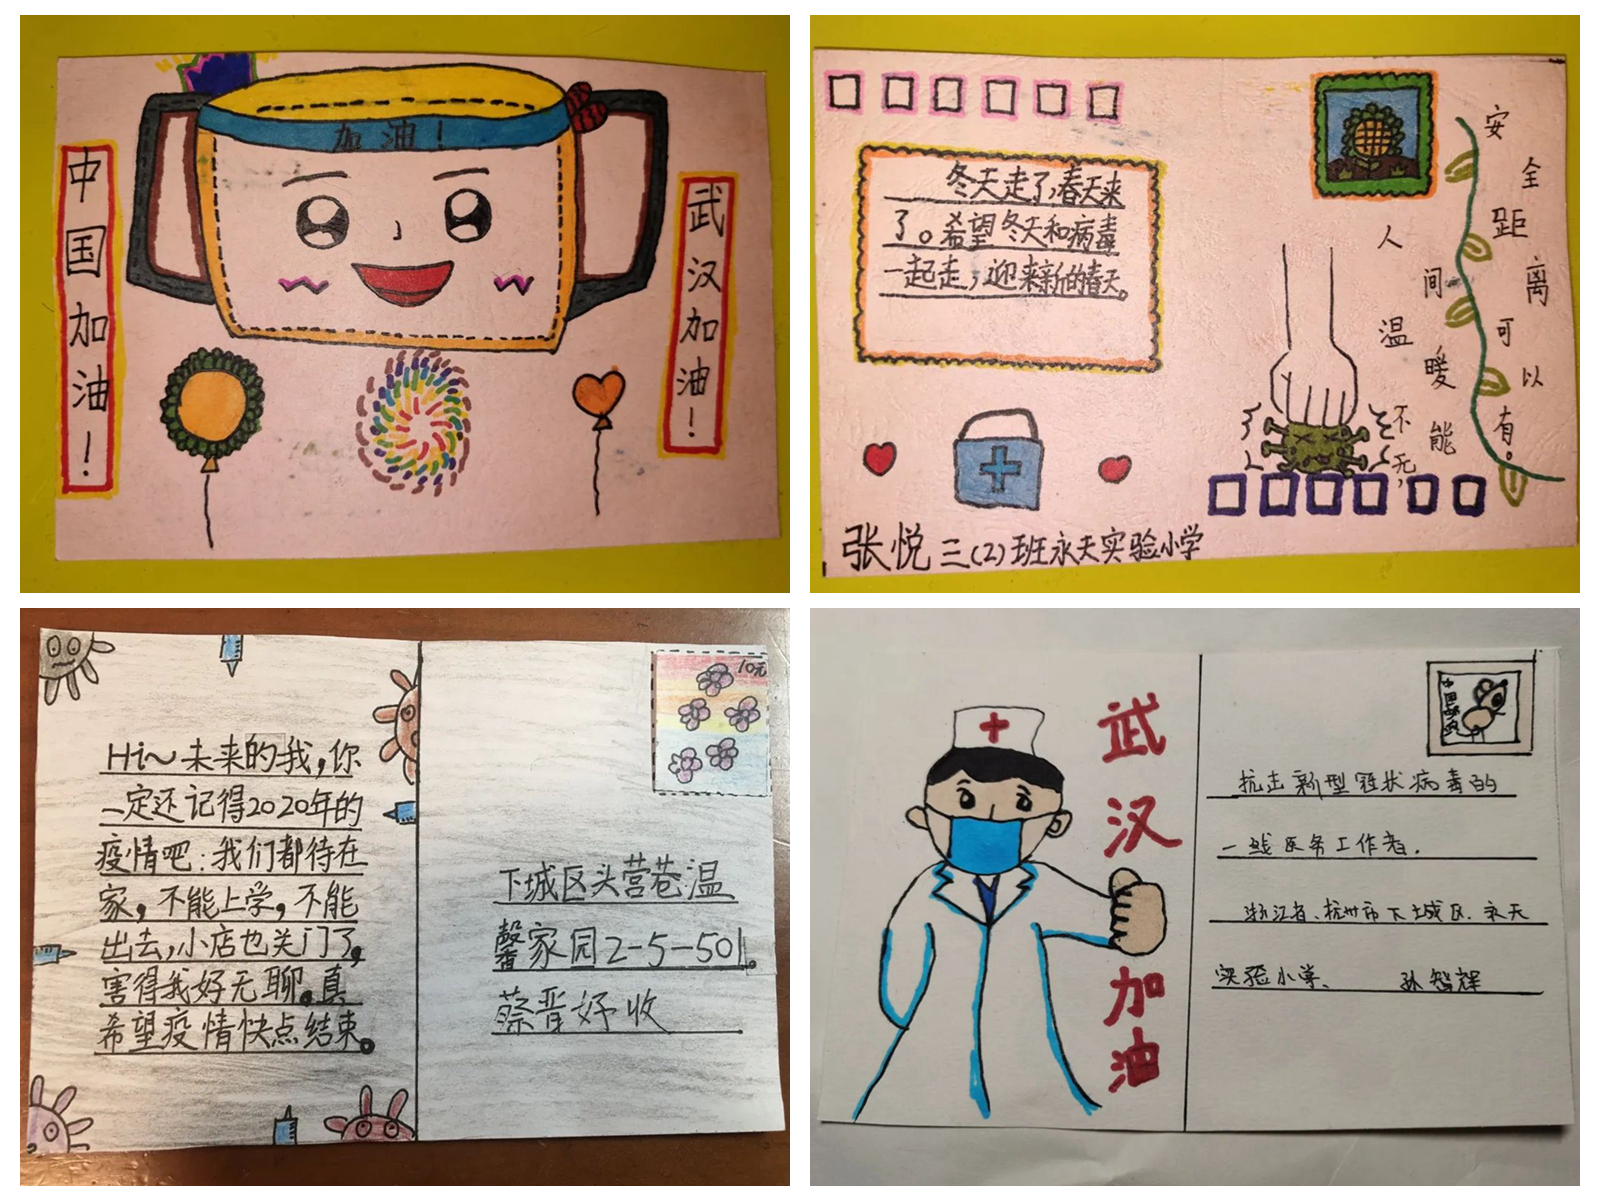 加油！
中国加油！
武汉加油！
冬天走了，春天来
了。希望冬天和病毒
一起走，迎来新的春天。
安全距离可以有。
人间温暖不能无，
张悦三(2)班永天实验小学
Hi～未来的我，你
一定还记得2020年的
疫情吧：我们都待在
家，不能上学，不能
出去，小店也关门了，
害得我好无聊。真
希望疫情快点结束。
10元
下城区头营巷温
馨家园2-5-501。
蔡晋好收
武汉加油
中国邮政
抗击新型冠状病毒的
一线医务工作者.
浙江省、杭州市下城区.永天
实验小学、 孙智辉